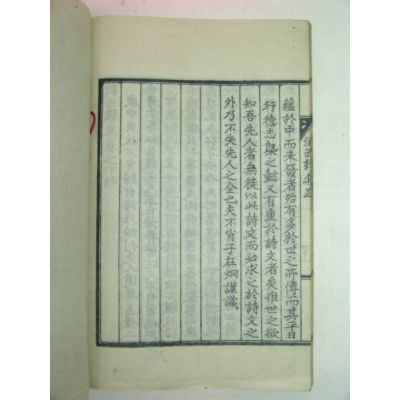 蘊於中而未發者殆有多於世之所傳而其平日
行德志槩之懿又有重於詩文者矣惟世之欲
知吾先人者無徒以此詩文而必求之於詩文之
外乃不失先人之全也夫不肖子在炯謹識